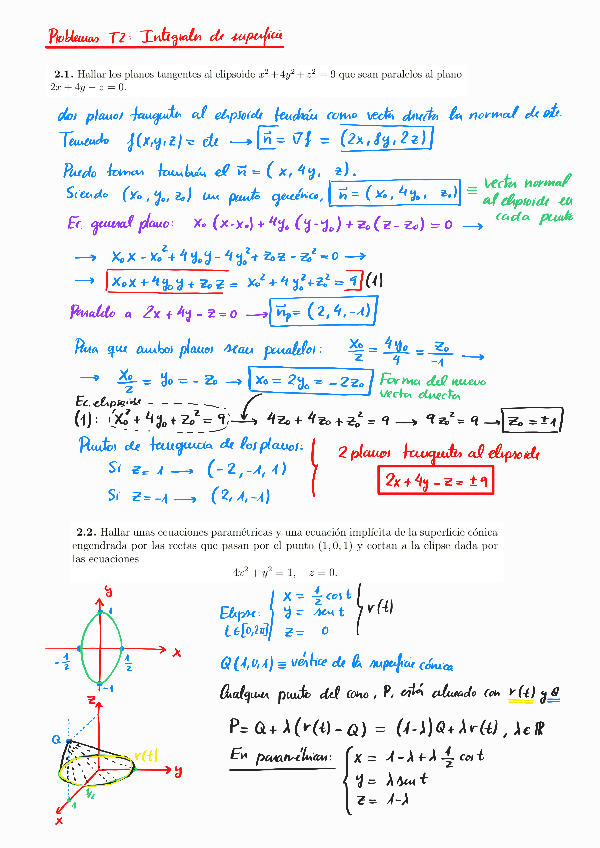 Problemas T2: Integrales de superficie
2.1. Hallar los planos tangentes al elipsoide x² + 4y² + z² = 9 que sean paralelos al plano
2x + 4y − z = 0.
dos planos tangentes al elipsoide tendrán como vector director la normal de este.
Teniendo f(x,y,z) = cte → n⃗ = ∇f = (2x, 8y, 2z)
Puedo tomar también el n⃗ = (x, 4y, z).
Siendo (x₀, y₀, z₀) un punto genérico, n⃗ = (x₀, 4y₀, z₀) ≡ vector normal
al elipsoide en
cada punto
Ec. general plano: x₀(x-x₀) + 4y₀(y-y₀) + z₀(z-z₀) = 0 →
→ x₀x - x₀² + 4y₀y - 4y₀² + z₀z - z₀² = 0 →
→ x₀x + 4y₀y + z₀z = x₀² + 4y₀² + z₀² = 9 (1)
Paralelo a 2x + 4y - z = 0 → n⃗ₚ = (2, 4, -1)
Para que ambos planos sean paralelos: x₀/2 = 4y₀/4 = z₀/-1 →
→ x₀/2 = y₀ = -z₀ → x₀ = 2y₀ = -2z₀ Forma del nuevo
vector director
Ec. elipsoide
(1): x₀² + 4y₀² + z₀² = 9 → 4z₀ + 4z₀ + z₀² = 9 → 9z₀² = 9 → z₀ = ±1
Puntos de tangencia de los planos:
Si z = 1 → (-2, -1, 1)
Si z = -1 → (2, 1, -1)
2 planos tangentes al elipsoide
2x + 4y - z = ±9
2.2. Hallar unas ecuaciones paramétricas y una ecuación implícita de la superficie cónica
engendrada por las rectas que pasan por el punto (1, 0, 1) y cortan a la elipse dada por
las ecuaciones
4x² + y² = 1, z = 0.
y
1
-1/2
1/2
x
-1
Elipse:
t∈[0,2π]
x = 1/2 cos t
y = sen t
z = 0
r(t)
Q(1,0,1) ≡ vértice de la superficie cónica
Cualquier punto del cono, P, está alineado con r(t) y Q
P = Q + λ(r(t) - Q) = (1-λ)Q + λr(t), λ∈ℝ
En paramétricas:
x = 1-λ+λ 1/2 cos t
y = λ sen t
z = 1-λ
z
Q
r(t)
y
1/2
1
x